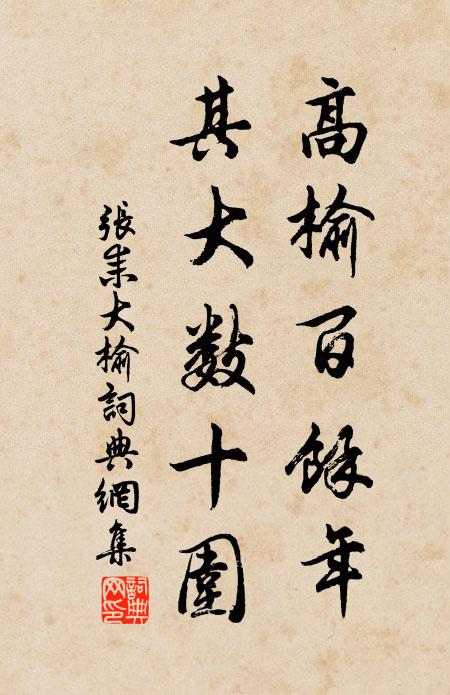 高榆百餘年
其大數十圍
張耒大榆詞典網集
詞典网印